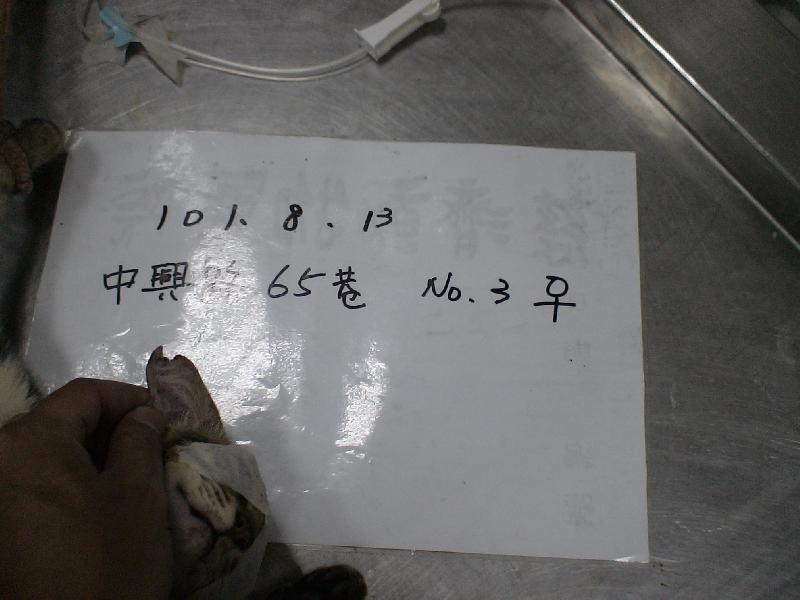 101.8.13
中興路 65巷 No.3 ♀